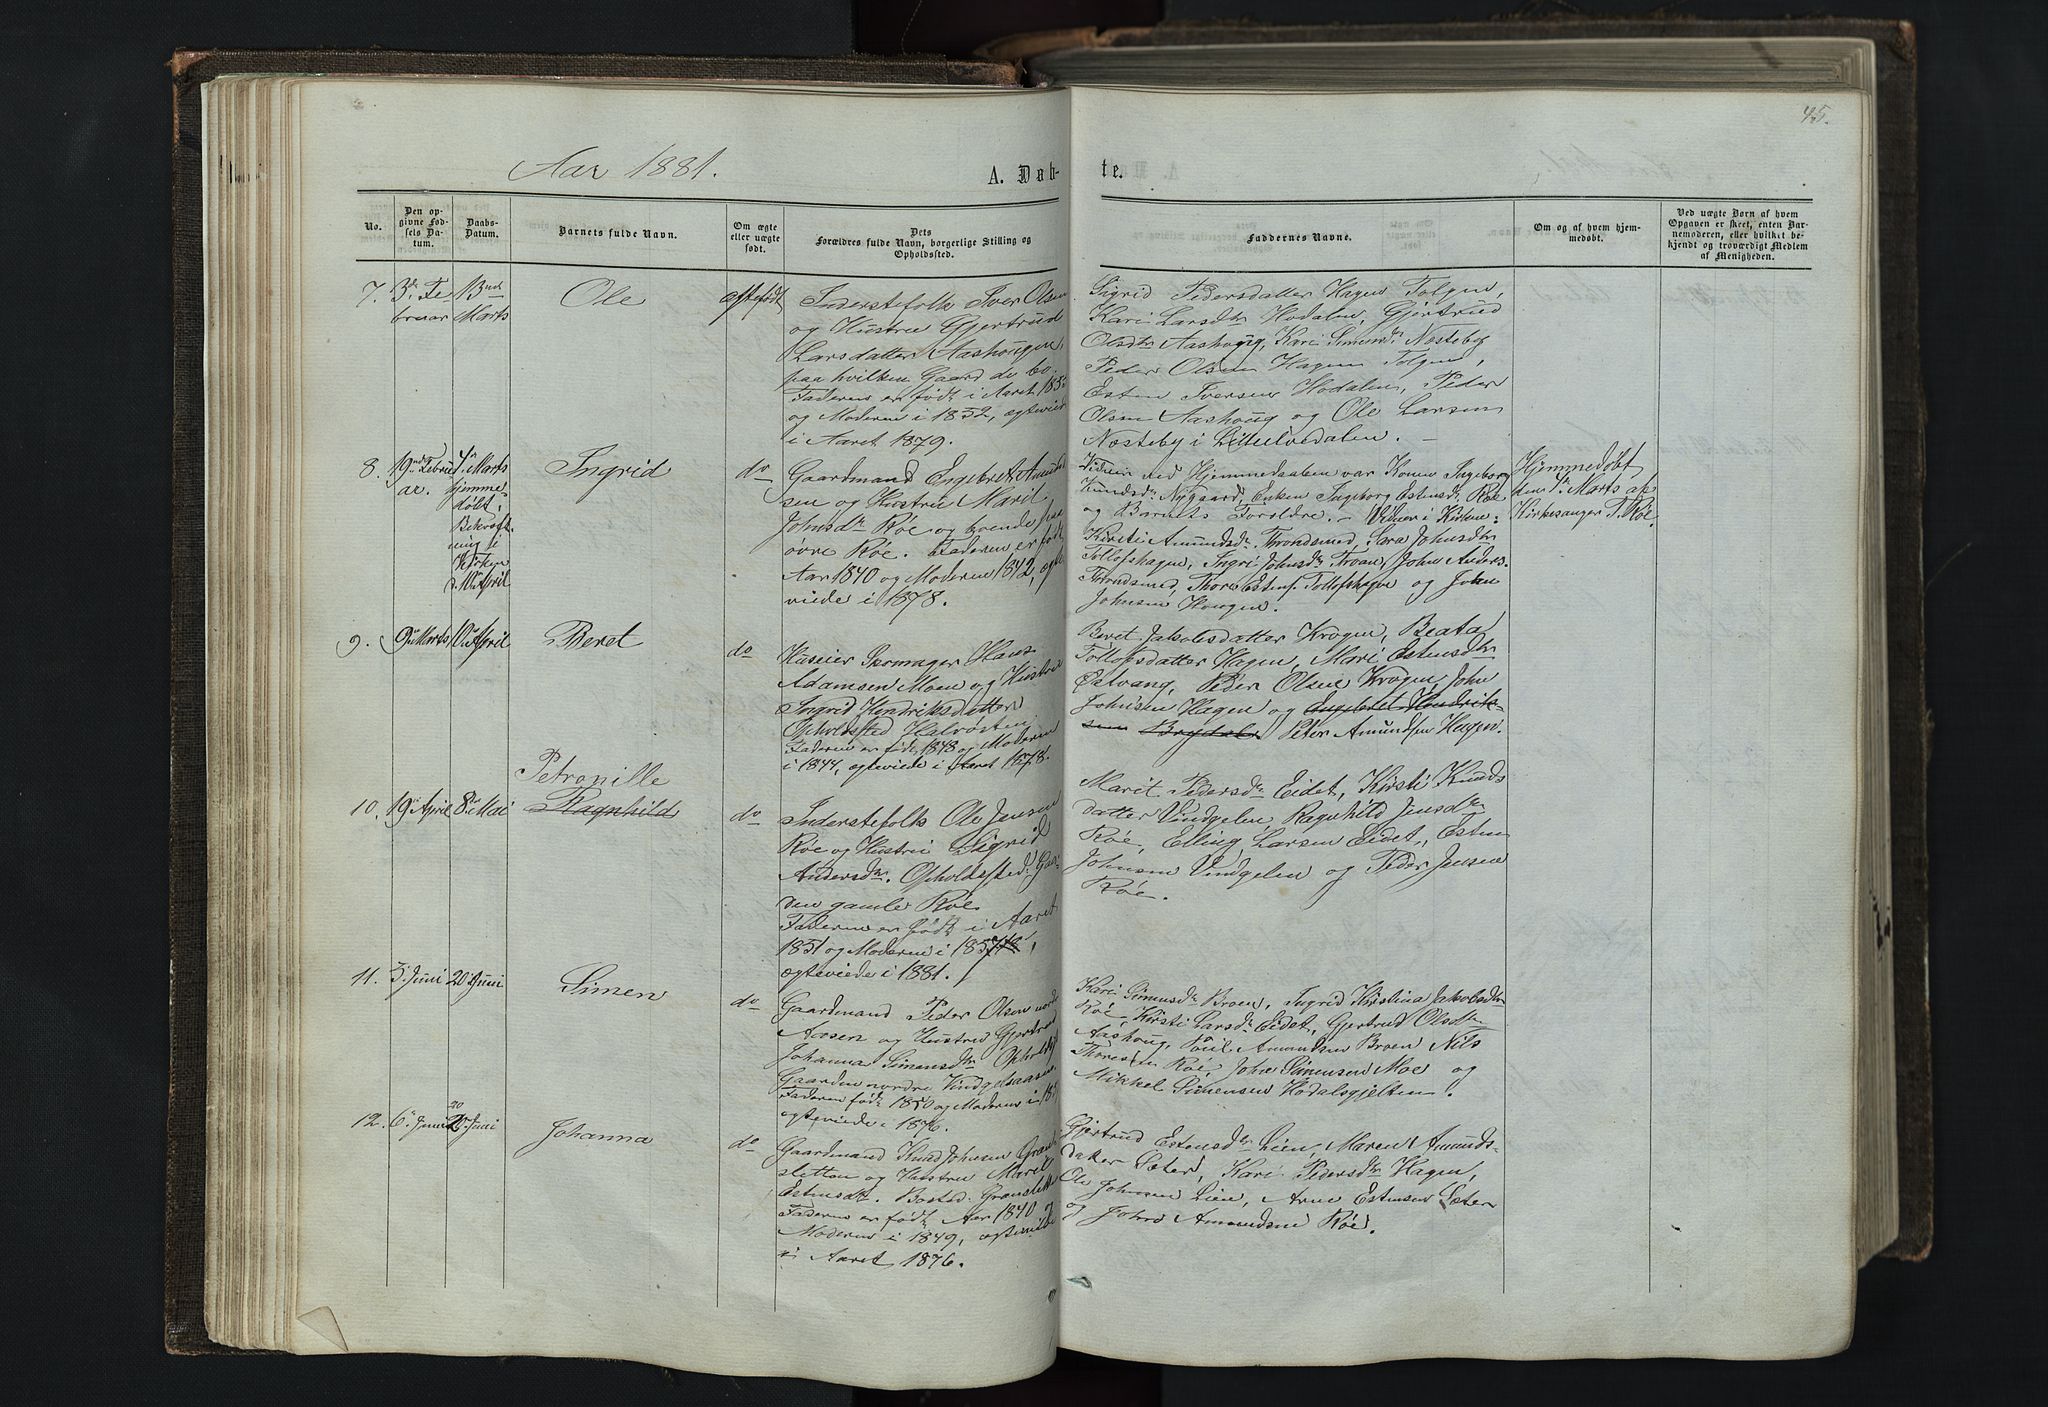 45.
Aar 1881.
A. Døb-
te.
No.
Den op-
givne Fød-
sels Da-
tum.
Daabs-
Datum.
Barnets fulde Navn.
Om ægte
eller uægte
født.
Dets
Forældres fulde Navn, borgerlige Stilling og
Opholdssted.
Faddernes Navne.
Om og af hvem hjem-
medøbt.
Ved uægte Børn af hvem
Opgaven er skeet, enten Bar-
nemoderen, eller hvilket be-
kjendt og troværdigt Medlem
af Menigheden.
7.
3de Fe-
bruar
13nd
Marts
Ole
ægtefødt
Inderstefolk Iver Olsen
og Hustru Gjertrud
Larsdatter Aashougen,
paa hvilken Gaard de bo.
Faderen er født i Aaret
og Moderen i 1852, ægteviede
i Aaret 1879.
Sigrid Pedersdatter Hagen Tolgen,
Kari Larsdtr Hodalen, Gjertrud
Olsdtr Aashoug, Kari Simensdr Nosteby
Peder Olsen Hagen Tolgen,
Esten Iversen Hodalen, Peder
Olsen Aashoug og Ole Larsen
Nosteby i Lilleelvedalen. —
8.
19nd Febru-
ar.
4de Marts
hjemme-
døbt.
Bekræft-
ning i
Kirken
d. 10de April
Ingrid
do
Gaardmand Engebret Amund-
sen og Hustru Marit
Johnsdr Røe og boende paa
øvre Røe. Faderen er født
Aar 1840 og Moderen 1842, ægte-
viede i 1878.
Vidner ved Hjemmedaaben var Konen Ingeborg
Knudsdr Nygaard, Enken Ingeborg Estensdr Røe
og Barnets Forældre. — Vidner i Kirken:
Kirsti Amundsdr Throndsmed, Sara Johnsdtr
Tollofshagen, Ingri Johnsdr Troan, John Anders.
Throndsmed, Thore Estens. Tollofshagen og John
Johnsen Hougen.
Hjemmedøbt
den 4de Marts af
Kirkesanger T. Røe.
9.
9de Marts
10de April
Beret
do
Huseier Skomager Hans
Adamsen Moen og Hustru
Ingrid Hendriksdatter
Opholdsted Halvøsten
Faderen er født 1848 og Moderen
i 1844, ægteviede i Aaret 1878.
Beret Jakobsdatter Krogen, Beata
Tollofsdatter Hagen, Mari Estensdtr
Estvang, Peder Olsen Krogen, John
Johnsen Hagen og Engebret Hendrik-
sen Brydalen Peter Amundsen Hagen.
10.
19de April
8de Mai
Petronille
Ragnhild
do
Inderstefolk Ole Jensen
Røe og Hustru Sigrid
Andersdtr. Opholdssted: Gaar-
den gamle Røe
Faderen er født i Aaret
1851 og Moderen i
ægteviede i 1881.
Marit Pedersdr Eidet, Kirsti Knuds-
datter Vindgelen, Ragnhild Jensdtr
Røe, Elling Larsen Eidet, Esten
Johnsen Vindgelen og Peder Jensen
Røe.
11.
3. Juni
20. Juni
Simen
do
Gaardmand Peder Olsen nordre
Aasen og Hustru Gjertrud
Johanna Simensdtr Opholdsst.
Gaarden nordre Vindgelsaasen.
Faderen født 1850 og Moderen i
ægteviede i 1876.
Kari Simensdr Broen, Ingrid Kristina Jakobsdtr
Røe, Kirsti Larsdr Eidet, Gjertrud Olsdtr
Aashoug, Poul Amundsen Broen Nils
Thoresen Røe, John Simensen Moe og
Mikkel Simensen Hodalsgjelten.
12.
6. Juni
20
20 Juni
Johanna
do
Gaardmand Knud Johnsen Gran-
sletten og Hustru Marit
Estensdtr. Bosted: Gransletten
Faderen er født Aar 1840 og
Moderen i 1849, ægteviede
i Aaret 1876.
Gjertrud Estensdtr Lien, Maren Amunds-
datter Sæter, Kari Pedersdtr Hagen,
Ole Johnsen Lien, Arne Estensen Sæter
og John Amundsen Røe.